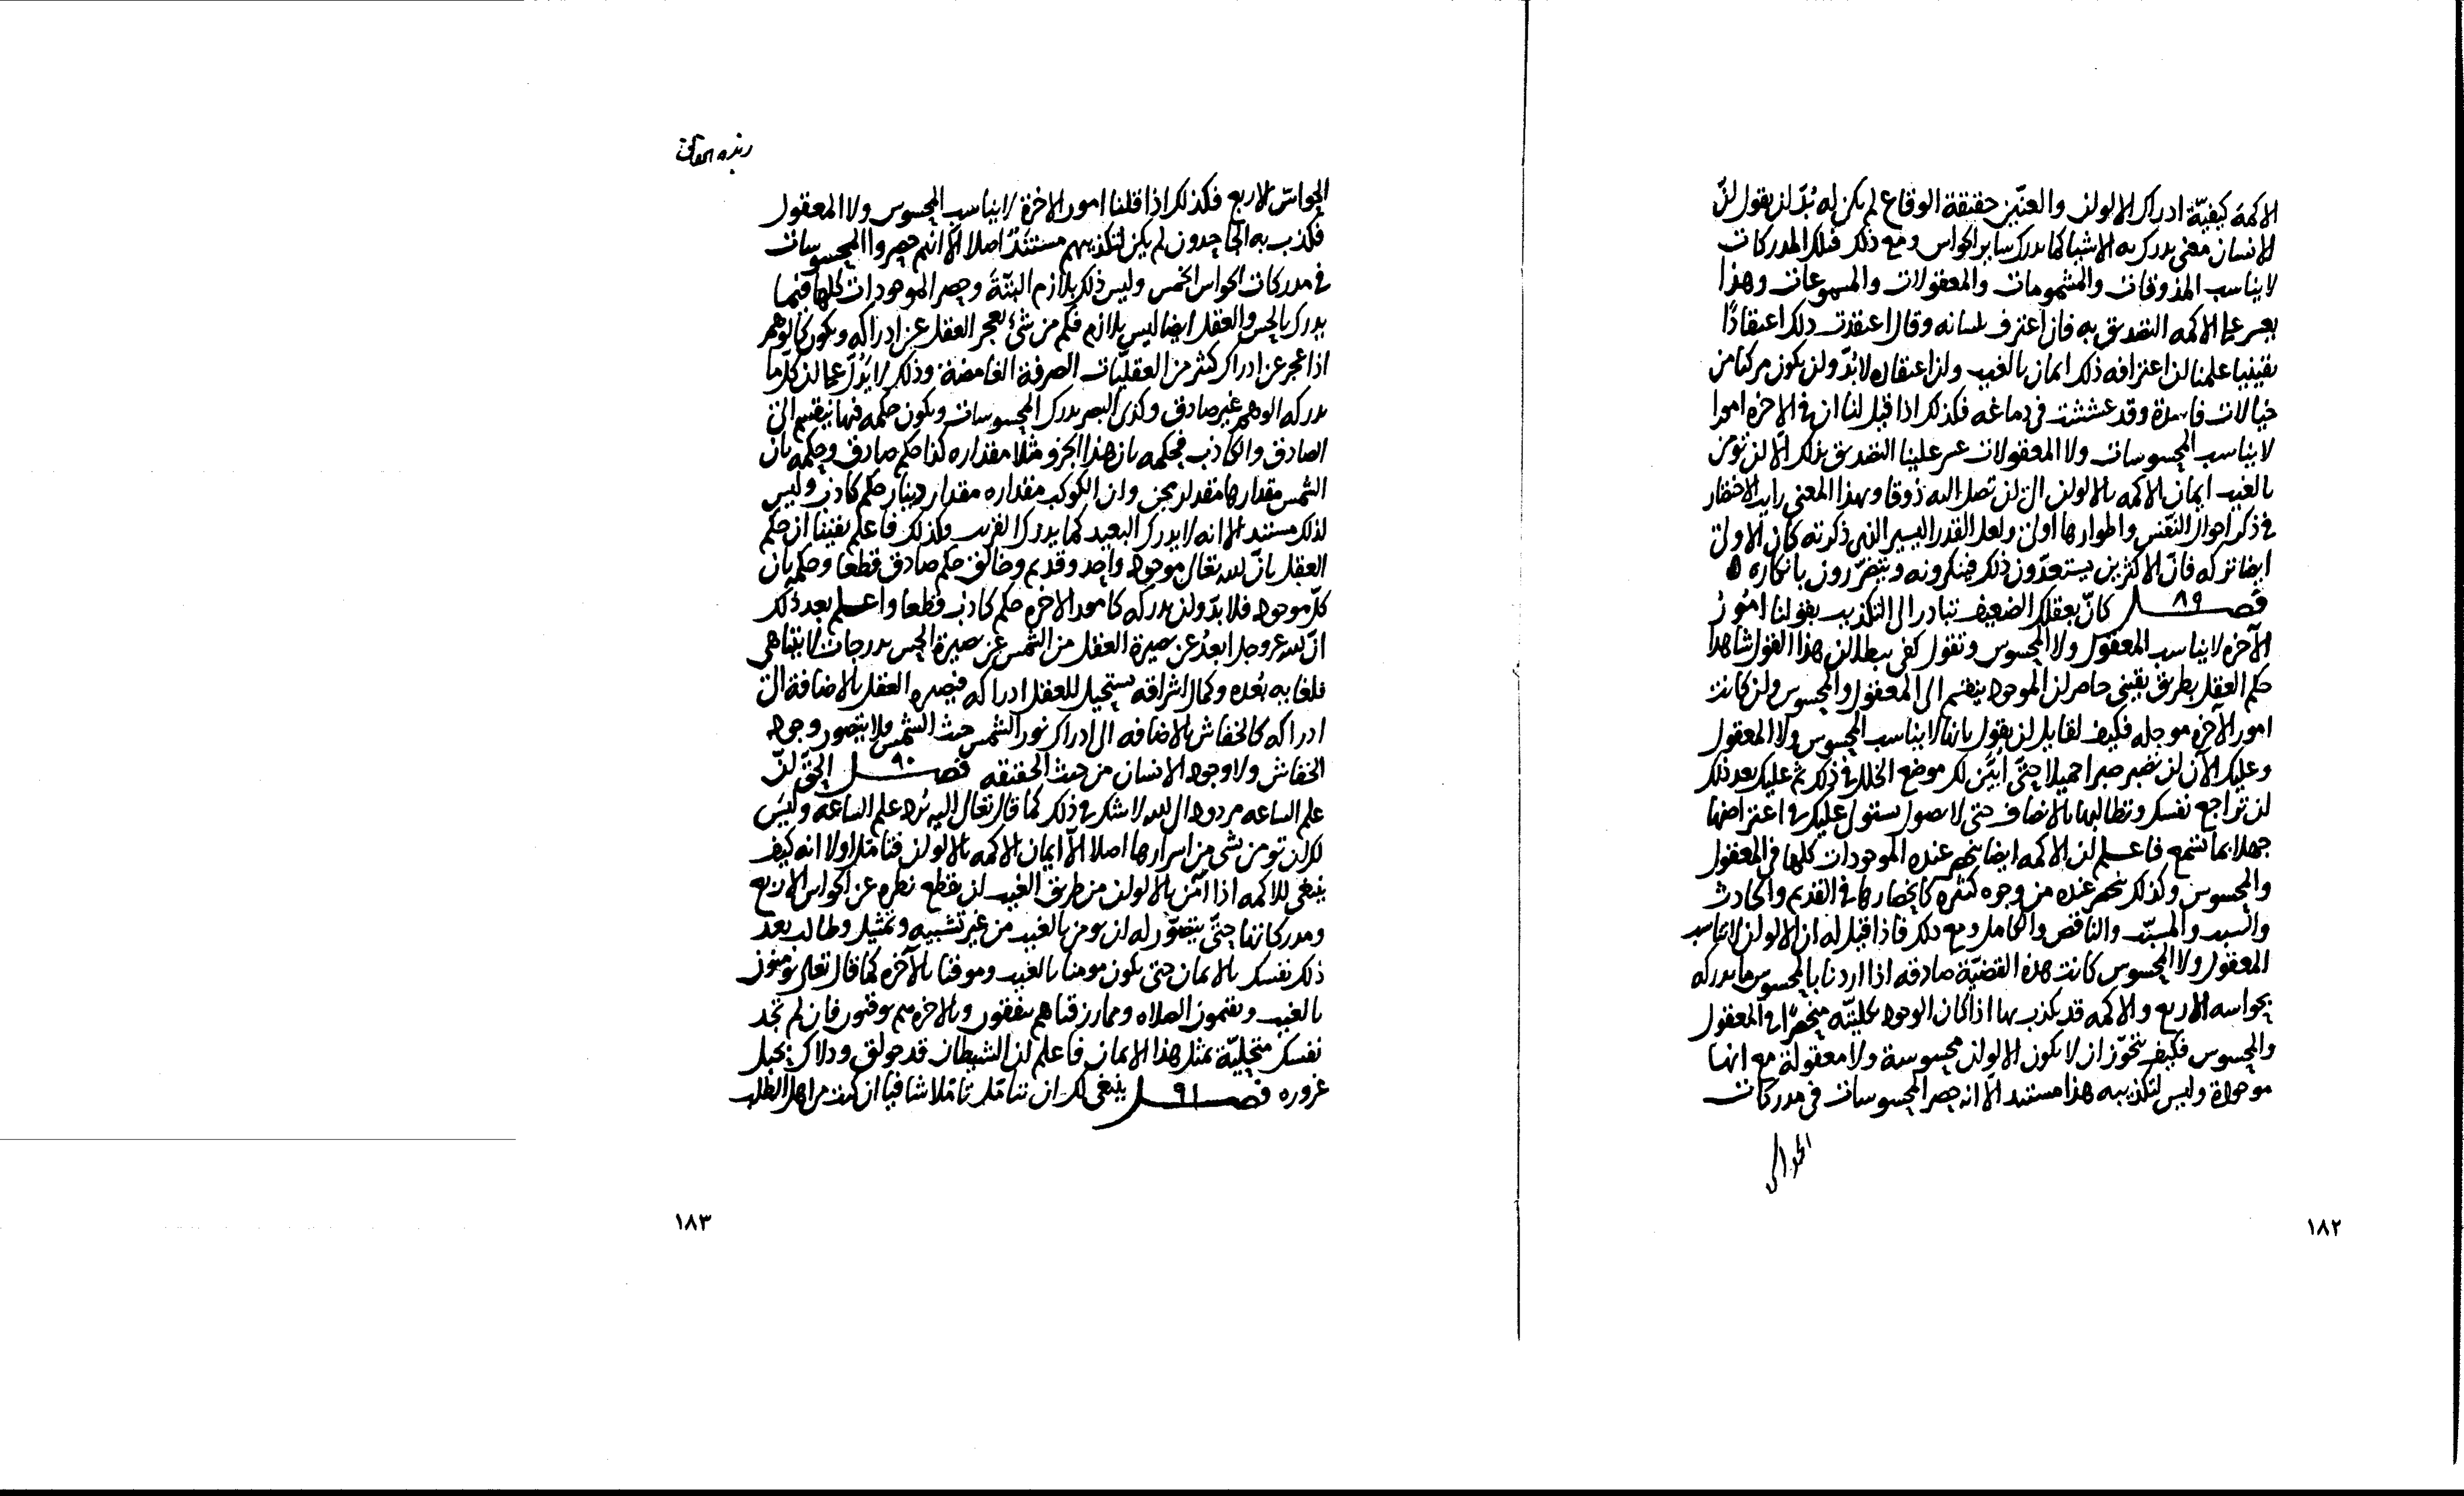 الاكمه كيفيّة ادراك الالوان والعنّين حقيقة الوقاع لم يكن له بُدّ ان يقول انّ
للانسان معنى يدرك به الاشيا كما يدرك ساير الحواس ومع ذلك فتلك المدركات
لا يناسب المذوقات والمشمومات والمعقولات والمسموعات وهذا
يعسر على الاكمه التصديق به فان اعترف بلسانه وقال اعتقدت ذلك اعتقادًا
يقينيا علمنا ان اعترافه ذلك ايمان بالغيب وان اعتقاده لابُدّ وان يكون مركبا من
خيالات فاسدة وقد عششت في دماغه فكذلك اذا قيل لنا ان في الاخرة امورا
لا يناسب المحسوسات ولا المعقولات عسر علينا التصديق بذلك الّا ان نؤمن
بالغيب ايمان الاكمه بالالوان الى ان نصل اليه ذوقا وبهذا المعنى رايت الاختصار
في ذكر احوال النّفس واطوارها اولى ولعل القدر اليسير الذى ذكرته كان الاولى
ايضا تركه فانّ الاكثرين يستبعدّون ذلك فينكرونه ويتضرّرون بانكاره
فصـــل ٨٩ كانّ بعقلك الضعيف تبادر الى التكذيب بقولنا امُورُ
الآخره لا يناسب المعقول ولا المحسوس وتقول كفى ببطلان هذا القول شاهدا
حكم العقل بطريق يقينى حاصر ان الموجود ينقسم الى المعقول والمحسوس وان كانت
امور الآخره موجوده فكيف لقايل ان يقول بانها لا يناسب المحسوس ولا المعقول
وعليك الآن ان تصبر صبرا جميلا حتّى ابيّن لك موضع الخلل في ذلك ثم عليك بعد ذلك
ان تراجع نفسك وتطالبها بالانصاف حتى لا تصول عليك في اعتراضها
جهلا بما تسمع فاعــلم ان الاكمه ايضا ينحصر عنده الموجودات كلها في المعقول
والمحسوس وكذلك ينحصر عنده من وجوه كثيره كانحصارها في القديم والحادث
والسبب والمسبّب والناقص والكامل ومع ذلك فاذا قيل له ان الالوان لا يناسب
المعقول ولا المحسوس كانت هذه القضيّة صادقه اذا اردنا بالمحسوس ما يدركه
بحواسه الاربع والاكمه قد يكذب بها اذا كان الوجود بكليّته منحصرًا في المعقول
والمحسوس فكيف يتجوّز ان لا يكون الالوان محسوسة ولا معقولة مع انها
موجودة وليس لتكذيبه هذا مستند الّا انه حصر المحسوسات في مدركات
١٨٢
زبدة الحقائق
الحواسّ الاربع فكذلك اذا قلنا امور الاخرة لا يناسب المحسوس ولا المعقول
فكذب به الجاحدون لم يكن لتكذيبهم مستندٌ اصلا الّا انهم حصروا المحسوسات
في مدركات الحواس الخمس وليس ذلك بلازم البتّة وحصر الموجودات كلها فيما
يدرك بالحس والعقل ايضا ليس بلازم فكم من شئ يعجز العقل عن ادراكه ويكون كالوهم
اذا عجز عن ادراك كثير من العقليّات الصرفة الغامضة وذلك لا يدُلّ على ان كلّما
يدركه الوهم غير صادق وكذى البصر يدرك المحسوسات ويكون حكمه فيها ينقسم الى
الصادق والكاذب فحكمه بان هذا الجزو مثلا مقداره كذا حكم صادق وحكمه بان
الشمس مقدارها مقدار مجن وان الكوكب مقداره مقدار دينار حكم كاذب وليس
لذلك مستند الا انه لا يدرك البعيد كما يدرك القريب وكذلك فاعلم يقينا ان حكم
العقل بانّ الله تعالى موجود واحد وقديم وخالق حكم صادق قطعا وحكمه بان
كلّ موجود فلا بدّ وان يدركه كامور الاخره حكم كاذب قطعا واعــلم بعد ذلك
انّ الله عز وجل ابعدُ عن بصيرة العقل من الشمس عن بصيرة الحس بدرجات لا يتناهى
فلغاية بُعده وكمال اشراقه يستحيل للعقل ادراكه فيصير العقل بالاضافة الى
ادراكه كالخفاش بالاضافه الى ادراك نور الشمس حيث الشمس ولا يتصور وجود
الخفاش ولا وجود الانسان من حيث الحقيقه فصـــل ٩٠ الحقّ انّ
علم الساعه مردود الى الله لا شك في ذلك كما قال تعالى اليه يُرد علم الساعه وليس
لك ان تومن بشى من اسرارها اصلا الّا ايمان الاكمه بالالوان فتامّل اولا انه كيف
ينبغى للاكمه اذا آمن بالالوان من طريق الغيب ان يقطع نظره عن الحواس الاربع
ومدركاتها حتّى يتصوّر له ان يومن بالغيب من غير تشبيه وتمثيل وطالب بعد
ذلك نفسك بالايمان حتى يكون مومنا بالغيب وموقنا بالآخره كما قال تعالى يومنون
بالغيب ويقيمون الصلاه ومما رزقناهم ينفقون وبالاخره هم يوقنون فان لم تجد
نفسك متحليّة بمثل هذا الايمان فاعلم ان الشيطان قد ودلاك بحبل
غروره فصـــل ٩١ ينبغى لك ان تتامّل تامّلا شافيا ان كنت من اهل الطلب
١٨٣